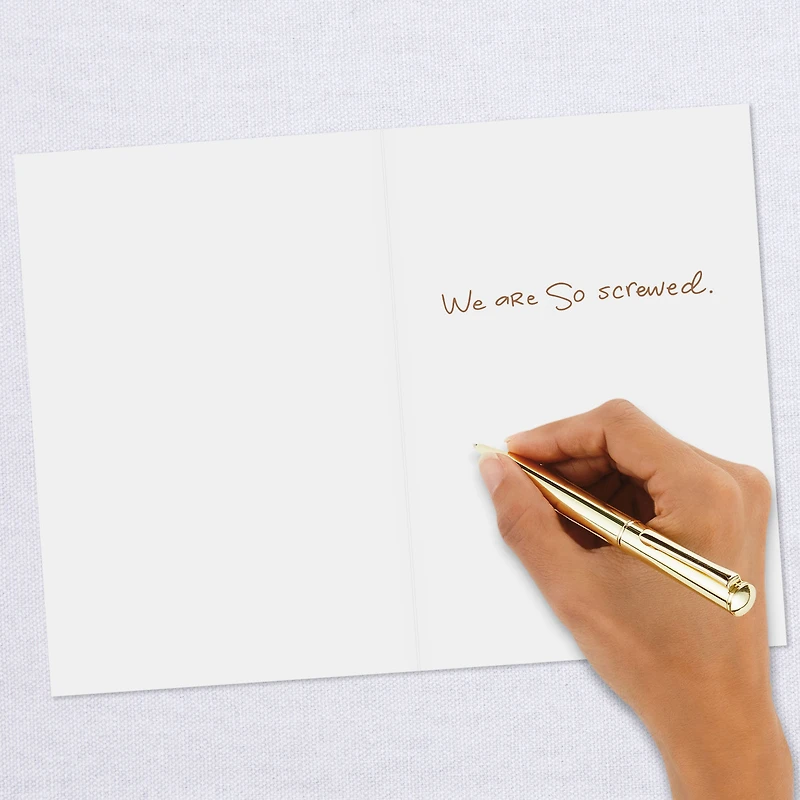 We aRe So screwed.